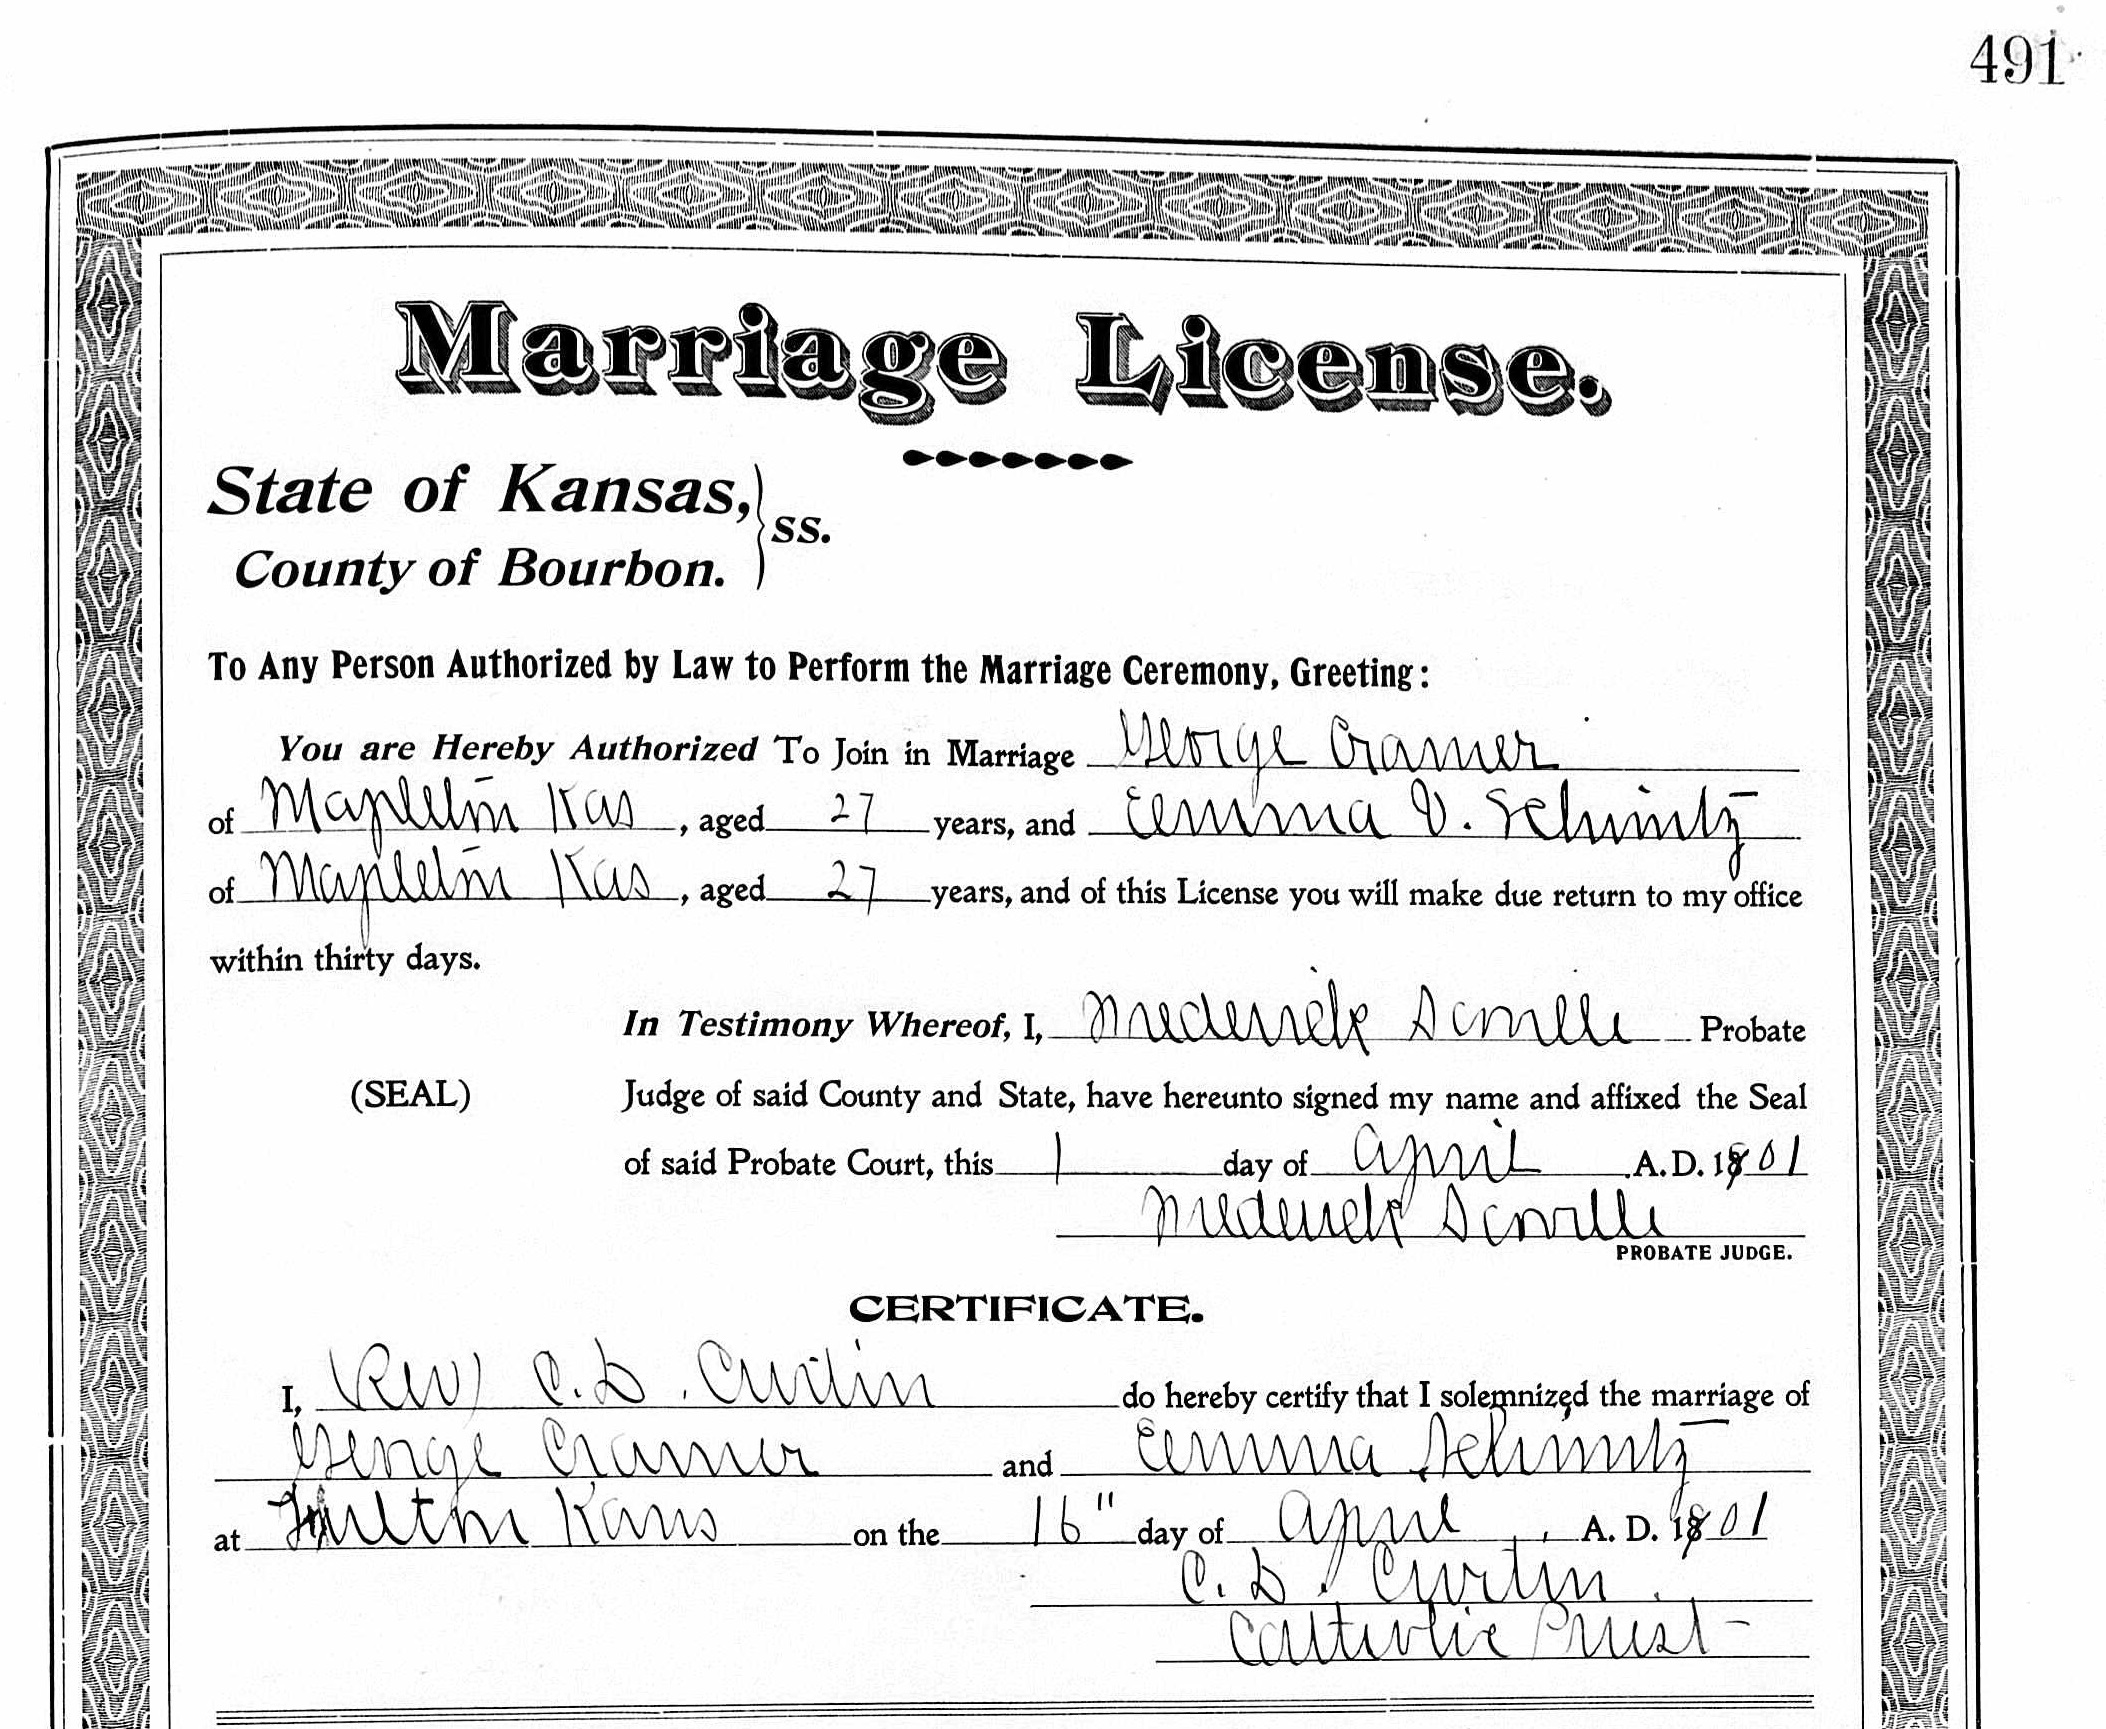 491
Marriage License.
State of Kansas,
County of Bourbon. } ss.
To Any Person Authorized by Law to Perform the Marriage Ceremony, Greeting:
You are Hereby Authorized To Join in Marriage George Cramer
of Mapleton Kas, aged 27 years, and Emma V. Schmitz
of Mapleton Kas, aged 27 years, and of this License you will make due return to my office
within thirty days.
In Testimony Whereof, I, Probate
(SEAL) Judge of said County and State, have hereunto signed my name and affixed the Seal
of said Probate Court, this 1 day of April A.D. 1901
PROBATE JUDGE.
CERTIFICATE.
I, Rev C. D. Curtin do hereby certify that I solemnized the marriage of
George Cramer and Emma Schmitz
at Fulton Kans on the 16" day of April A. D. 1901
C. D. Curtin
Catholic Priest